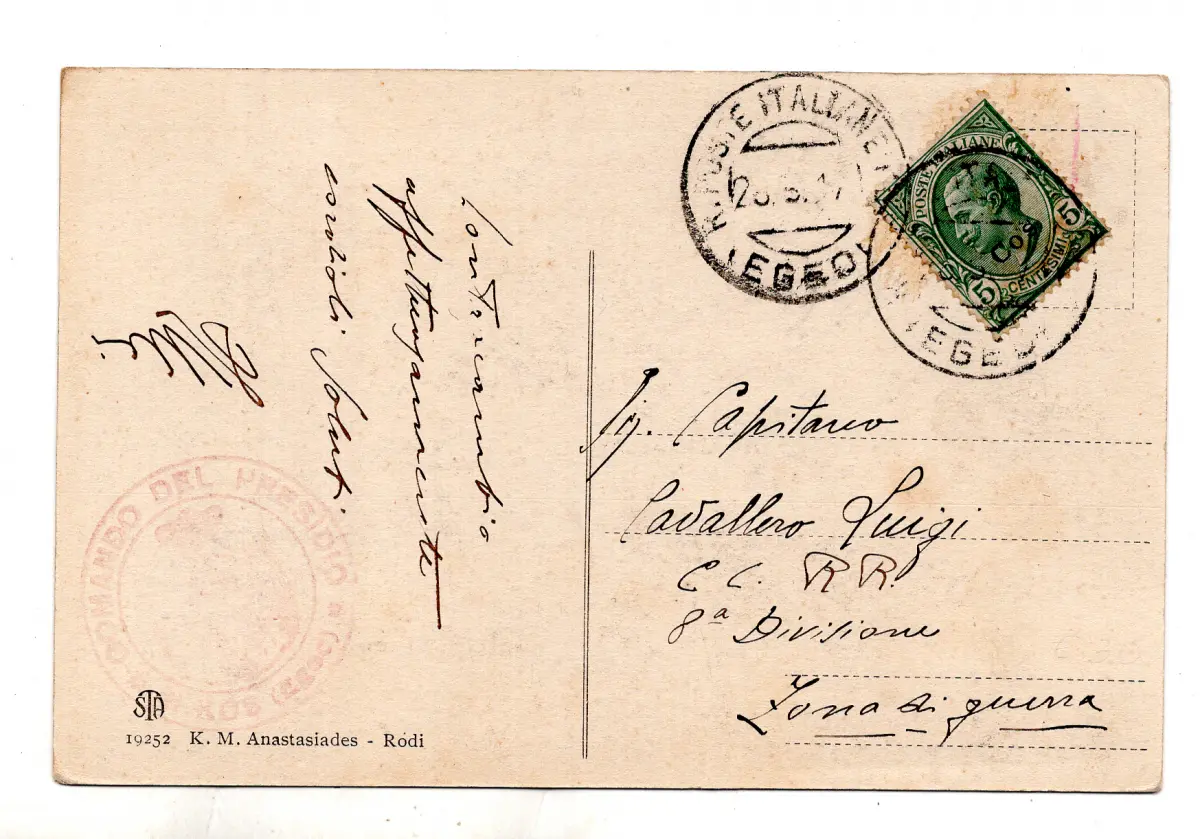 Contracambio
affettuosamente
cordiali saluti.
COMANDO DEL PRESIDIO
KOS (EGEO)
STA
19252 K. M. Anastasiades - Rodi
R. POSTE ITALIANE
(EGEO)
POSTE ITALIANE
CENTESIMI
5
5
(EGEO)
Sig. Capitano
Cavallero Luigi
CC. RR.
8ª Divisione
Zona di guerra